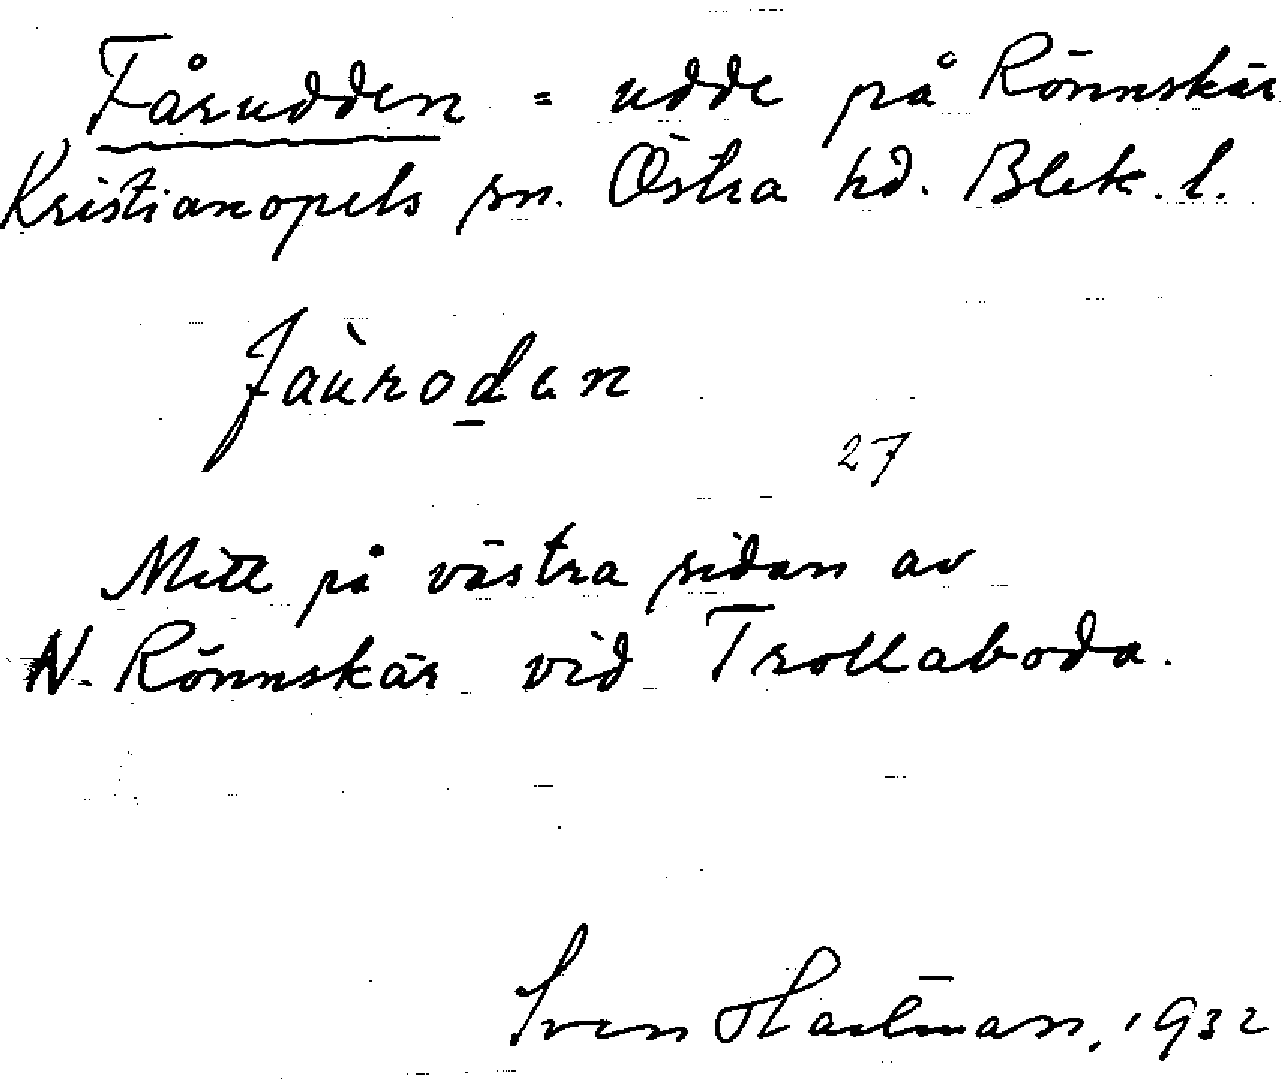 Fårudden = udde på Rönnskär
Kristianopels sn. Östra hd. Blek. l.
fàurodan
27
Mitt på västra sidan av
N. Rönnskär vid Trollaboda.
Sven Hallman, 1932